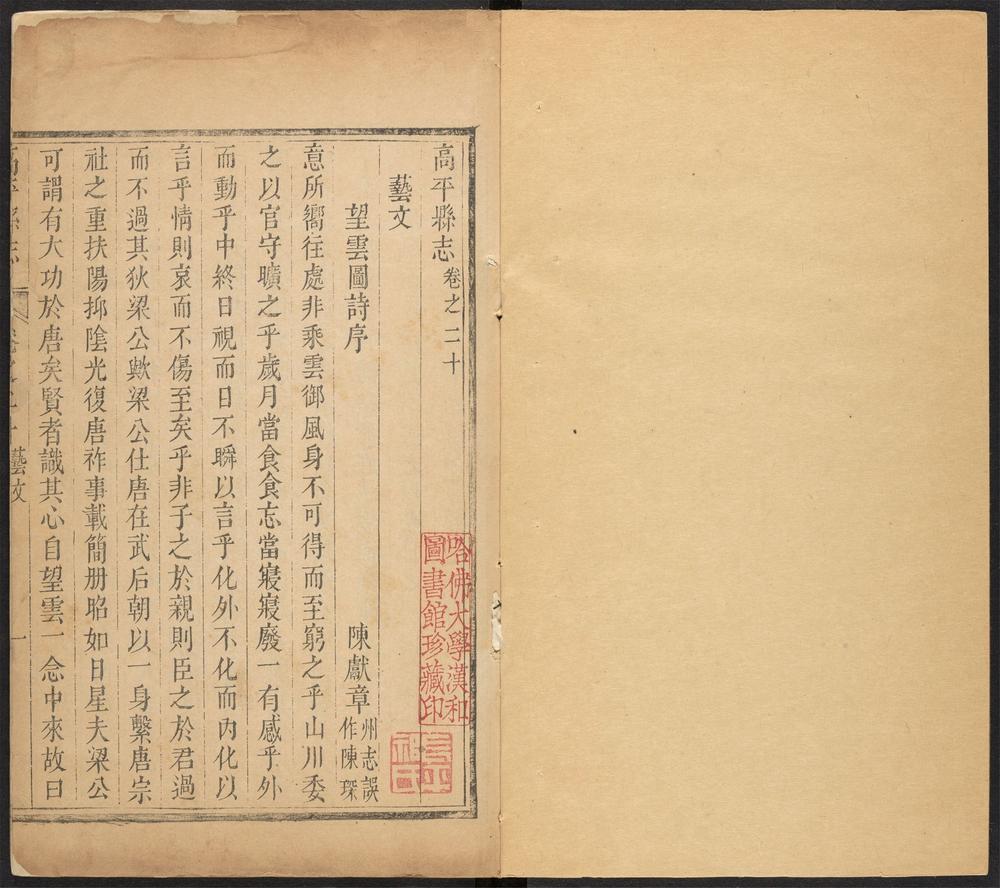 高平縣志卷之二十
藝文
望雲圖詩序 陳獻章州志誤作陳琛
意所嚮往處非乘雲御風身不可得而至窮之乎山川委
之以官守曠之乎歲月當食食忘當寢寢廢一有感乎外
而動乎中終日視而日不瞬以言乎化外不化而內化以
言乎情則哀而不傷至矣乎非子之於親則臣之於君過
而不過其狄梁公歟梁公仕唐在武后朝以一身繫唐宗
社之重扶陽抑陰光復唐祚事載簡册昭如日星夫梁公
可謂有大功於唐矣賢者識其心自望雲一念中來故曰
高平縣志 藝文 一
哈佛大學漢和
圖書館珍藏印